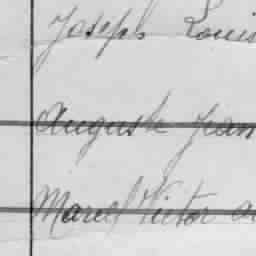 Joseph Louis
Auguste Jean
Marcel Victor